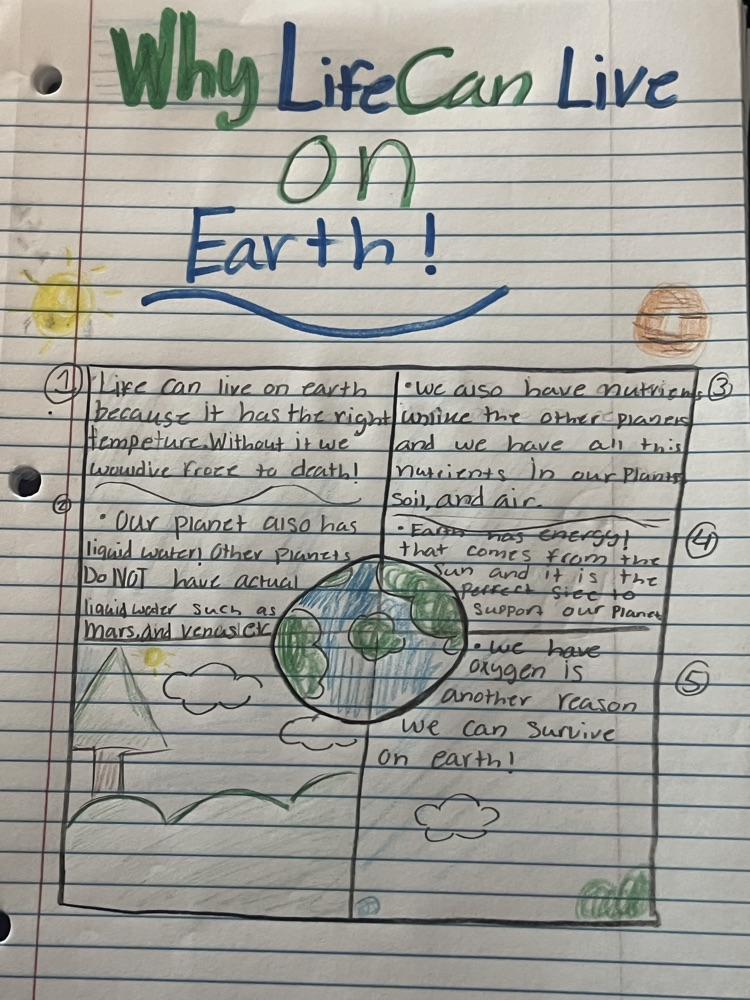 Why Life Can Live
on
Earth!
①
Life can live on earth
because it has the right
tempeture. Without it we
wouldive froze to death!
②
• Our planet also has
liquid water! Other planets
Do NOT have actual
liquid water such as
Mars, and venus etc
③
• we also have nutrients
unlike the other planets
and we have all this
nutrients in our plants
soil, and air.
④
• Earth has energy!
that comes from the
sun and it is the
perfect size to
support our planet
⑤
• we have
oxygen is
another reason
we can survive
on earth!